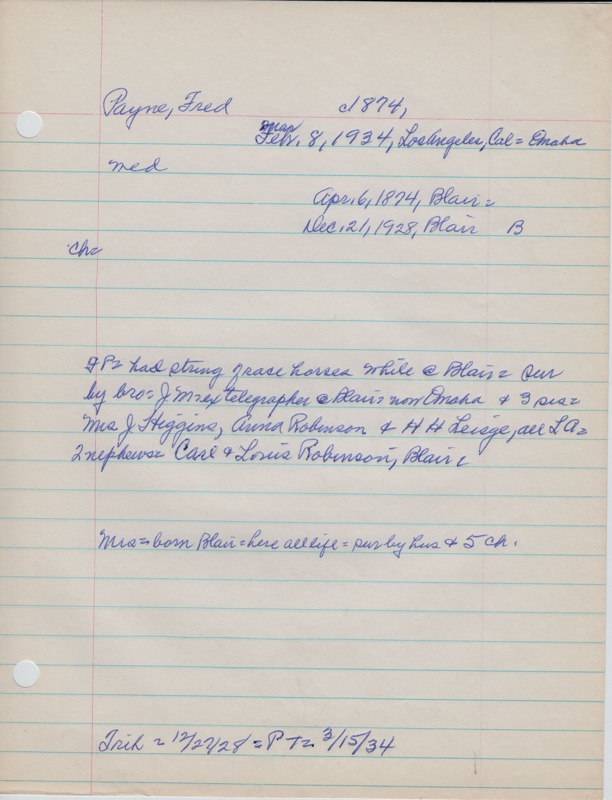 Payne, Fred c1874,
Mar
Feb. 8, 1934, Los Angeles, Cal = Omaha
med
Apr. 6, 1874, Blair =
Dec. 21, 1928, Blair B
ch=
FP= had string of race horses while @ Blair = sur
by bro= J M = ex telegrapher @ Blair = now Omaha & 3 sis=
Mrs J Higgins, Anna Robinson & H H Leisge, all LA=
2 nephews= Carl & Louis Robinson, Blair,
Mrs = born Blair = here all life = sur by hus & 5 ch.
Trib = 12/27/28 = P T = 3/15/34